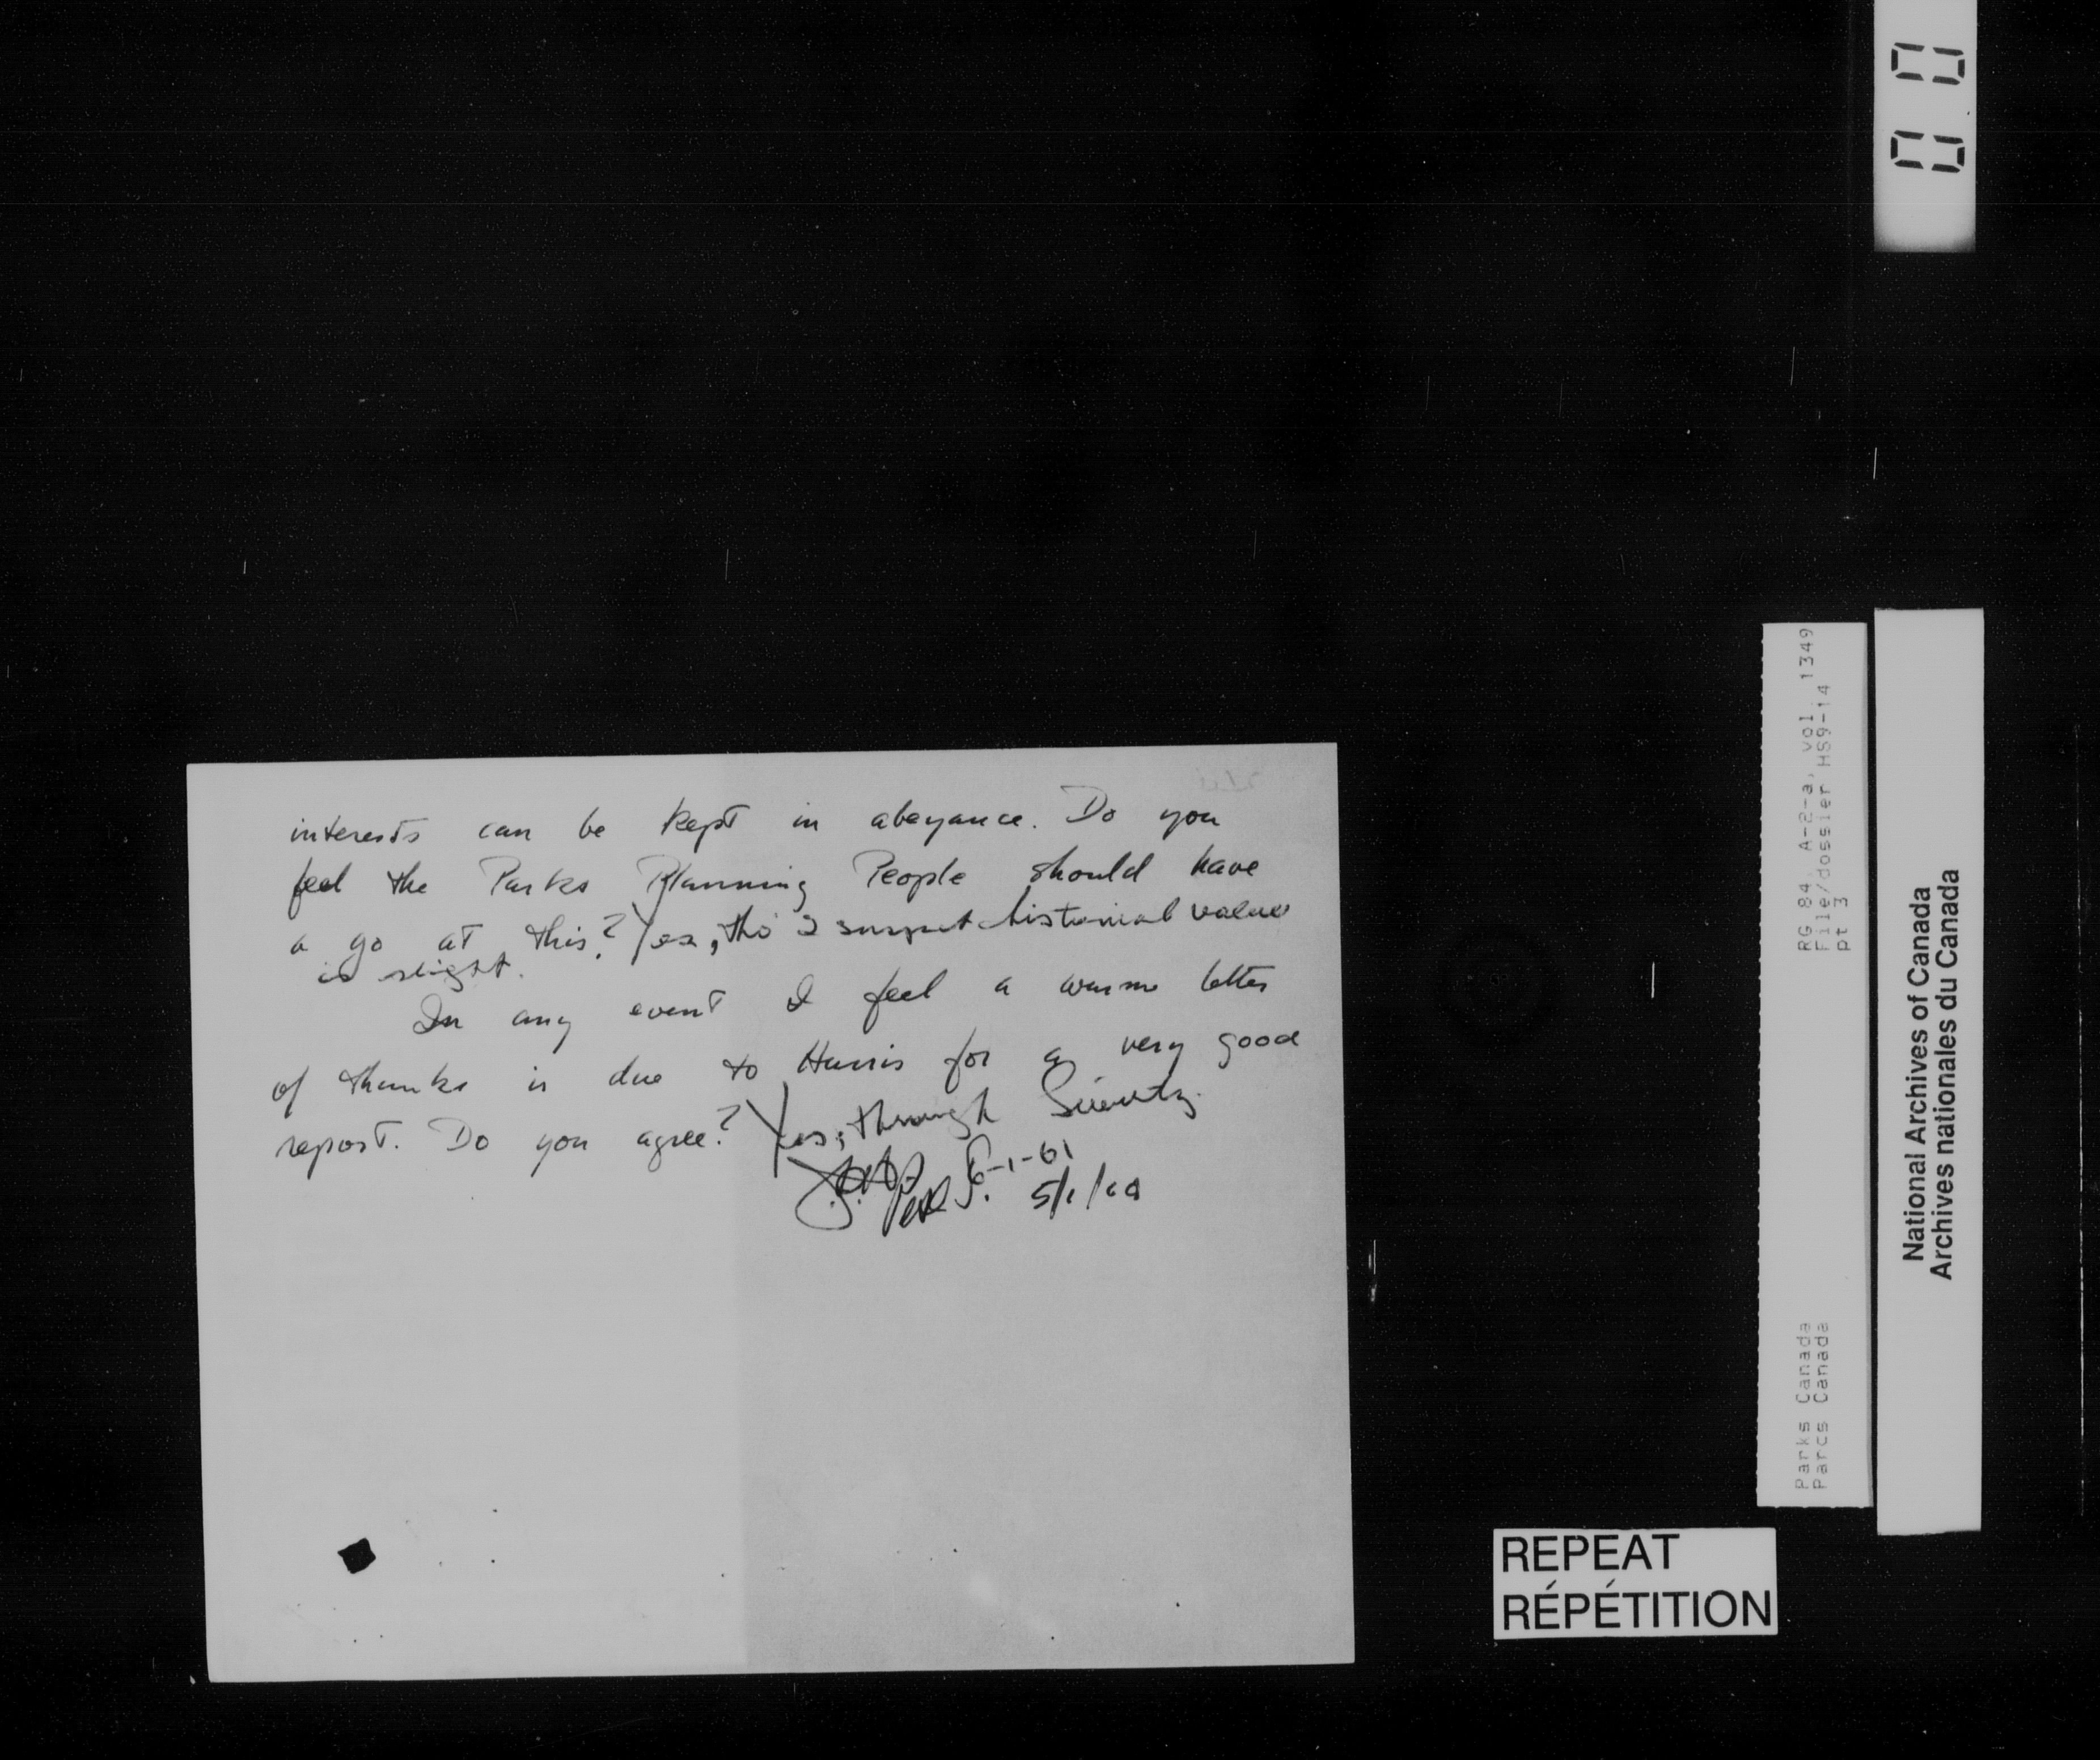 interests can be kept in abeyance. Do you
feel the Parks Planning People should have
a go at this? Yes, tho I suspect historical value
is slight.
In any event I feel a warm letter
of thanks is due to Harris for a very good
report. Do you agree? Yes, through
6-1-61
5/1/
RG 84, A-2-a, vol. 1349
File/dossier HS9-14
pt 3
Parks Canada
Parcs Canada
National Archives of Canada
Archives nationales du Canada
REPEAT
RÉPÉTITION